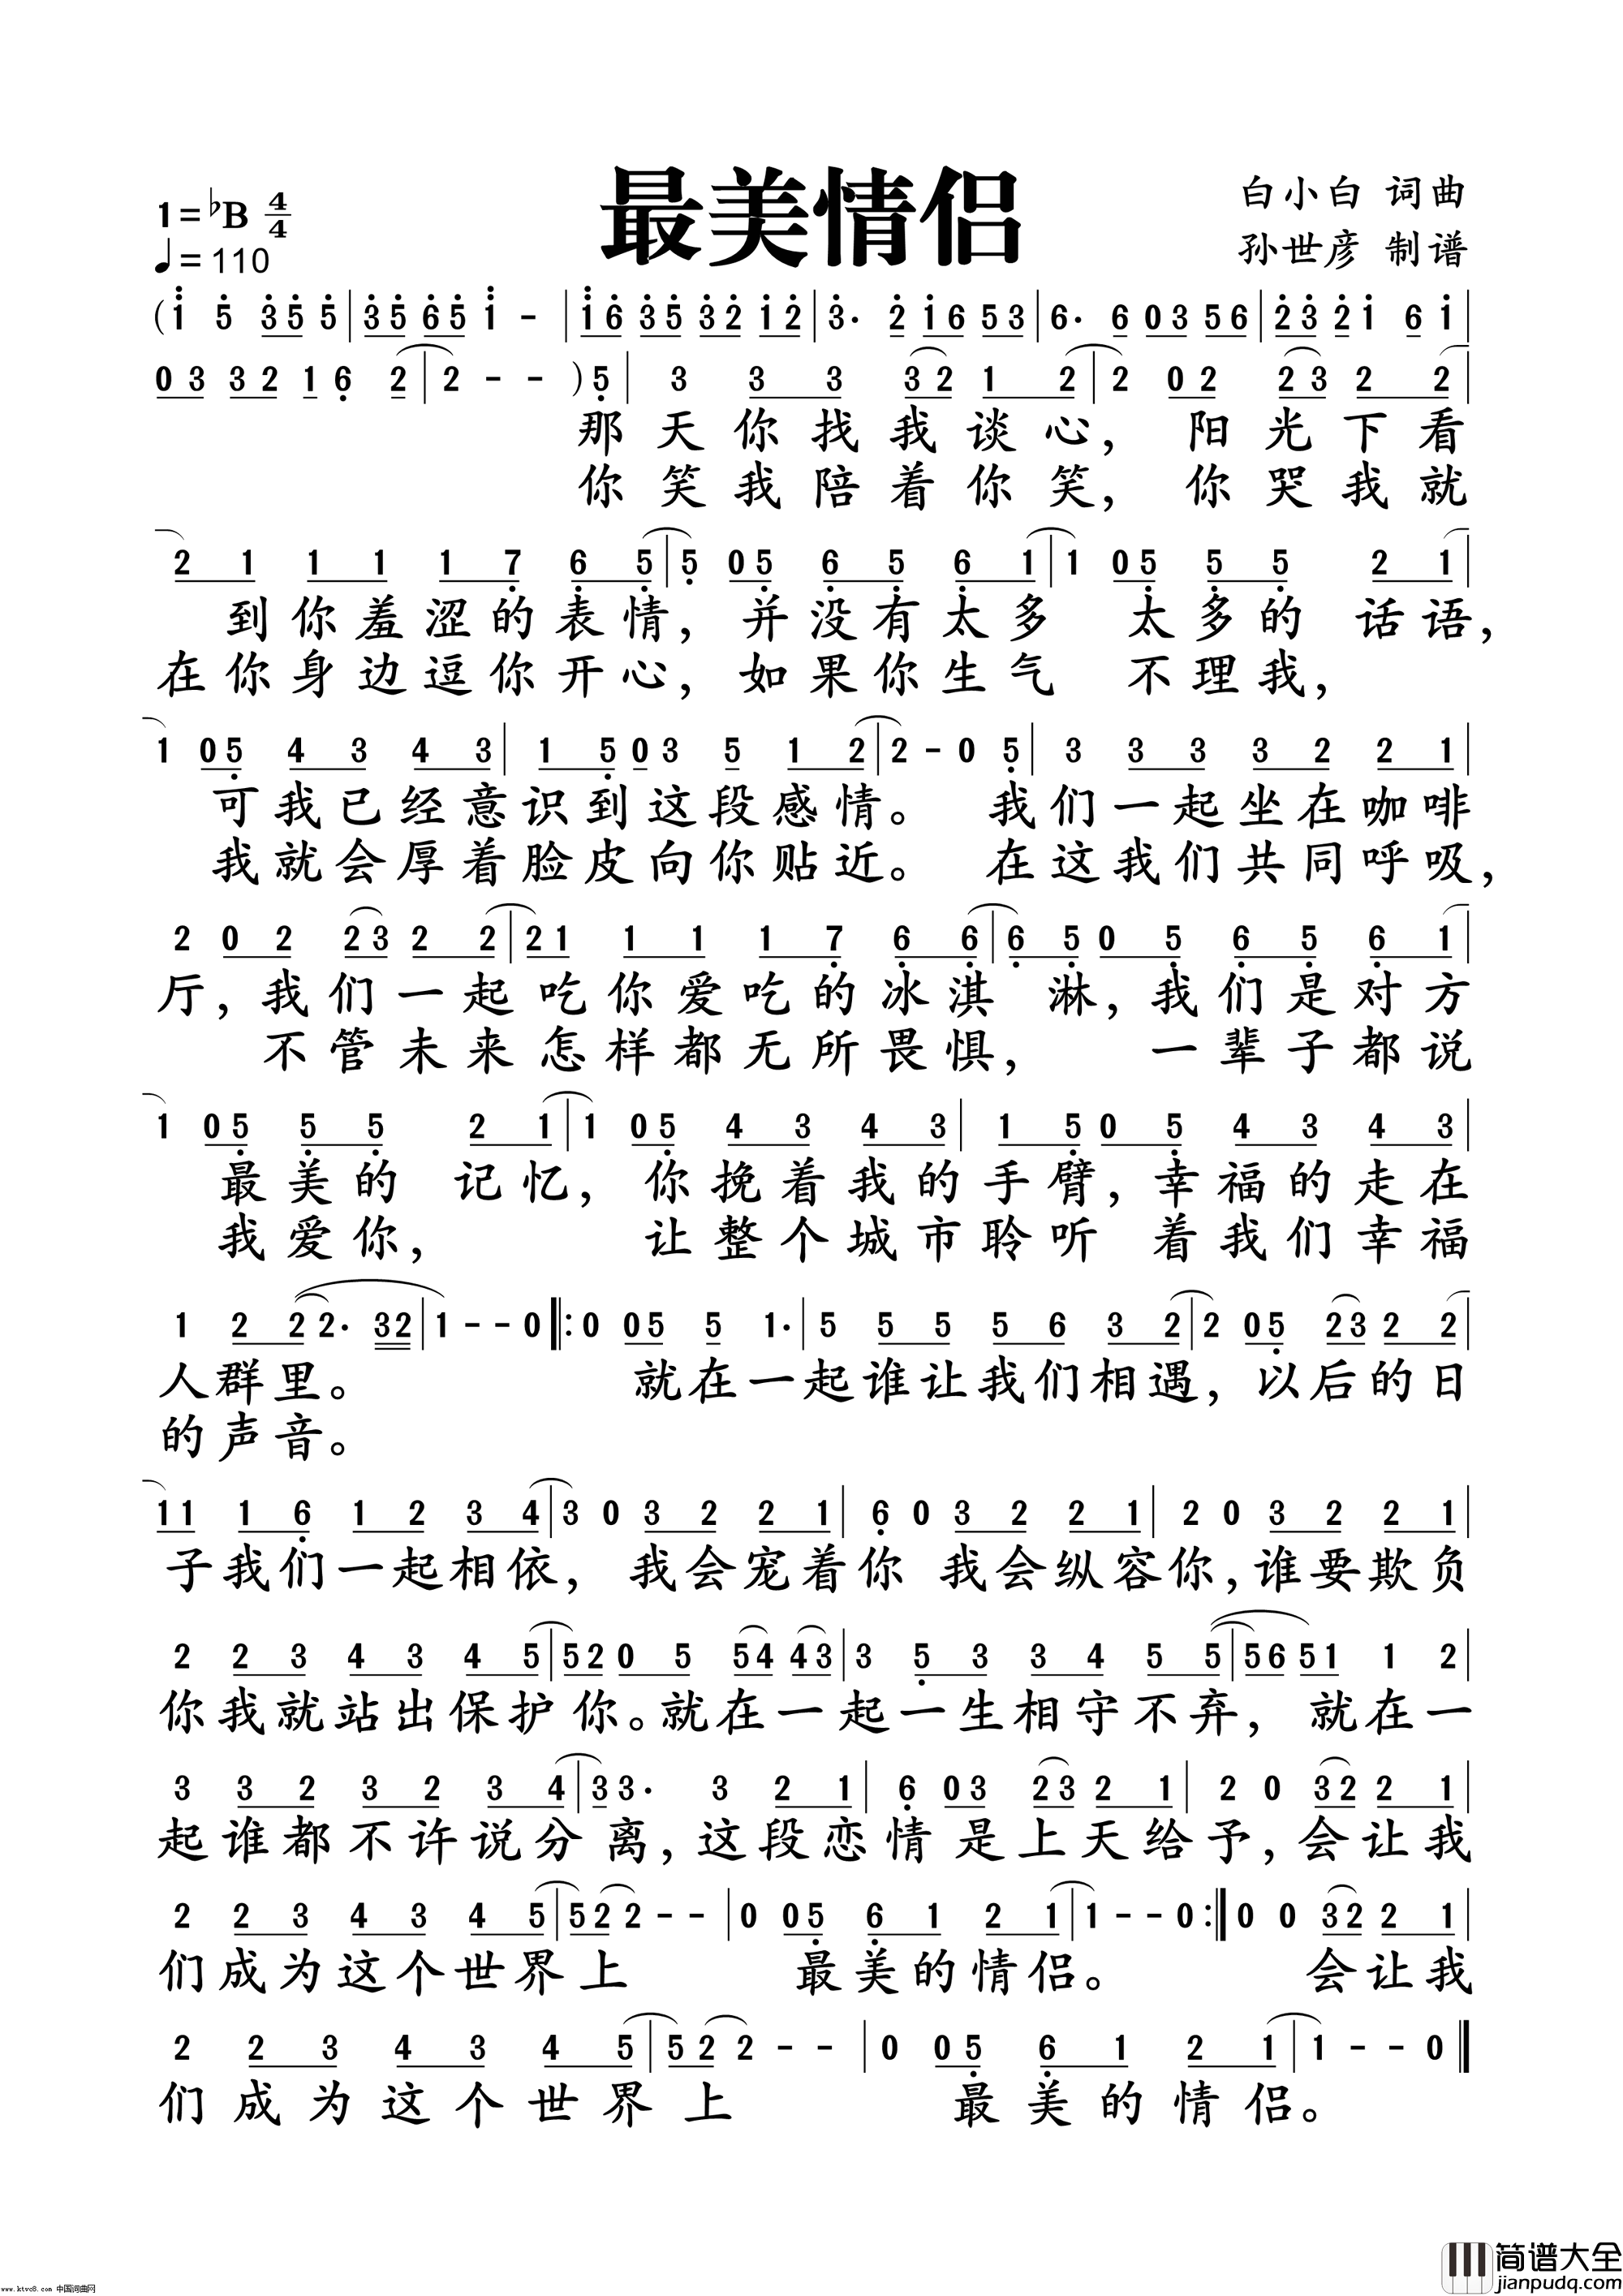 最美情侣
1=♭B 4/4
♩=110
白小白 词曲
孙世彦 制谱
(1 5 3 5 5 | 3 5 6 5 1 - | 1 6 3 5 3 2 1 2 | 3· 2 1 6 5 3 | 6· 6 0 3 5 6 | 2 3 2 1 6 1 |
0 3 3 2 1 6 2 | 2 - - ) 5 | 3 3 3 3 2 1 2 | 2 0 2 2 3 2 2 |
那天你找我谈心, 阳光下看
你笑我陪着你笑, 你哭我就
2 1 1 1 1 7 6 5 | 5 0 5 6 5 6 1 | 1 0 5 5 5 2 1 |
到你羞涩的表情, 并没有太多 太多的 话语,
在你身边逗你开心, 如果你生气 不理我,
1 0 5 4 3 4 3 | 1 5 0 3 5 1 2 | 2 - 0 5 | 3 3 3 3 2 2 1 |
可我已经意识到这段感情。 我们一起坐在咖啡
我就会厚着脸皮向你贴近。 在这我们共同呼吸,
2 0 2 2 3 2 2 | 2 1 1 1 1 7 6 6 | 6 5 0 5 6 5 6 1 |
厅, 我们一起吃你爱吃的冰淇 淋, 我们是对方
不管未来怎样都无所畏惧, 一辈子都说
1 0 5 5 5 2 1 | 1 0 5 4 3 4 3 | 1 5 0 5 4 3 4 3 |
最美的 记忆, 你挽着我的手臂, 幸福的走在
我爱你, 让整个城市聆听 着我们幸福
1 2 2 2· 3 2 | 1 - - 0 ‖: 0 0 5 5 1· | 5 5 5 5 6 3 2 | 2 0 5 2 3 2 2 |
人群里。 就在一起谁让我们相遇, 以后的日
的声音。
1 1 1 6 1 2 3 4 | 3 0 3 2 2 1 | 6 0 3 2 2 1 | 2 0 3 2 2 1 |
子我们一起相依, 我会宠着你 我会纵容你, 谁要欺负
2 2 3 4 3 4 5 | 5 2 0 5 5 4 4 3 | 3 5 3 3 4 5 5 | 5 6 5 1 1 2 |
你我就站出保护你。就在一起一生相守不弃, 就在一
3 3 2 3 2 3 4 | 3 3· 3 2 1 | 6 0 3 2 3 2 1 | 2 0 3 2 2 1 |
起谁都不许说分离, 这段恋情是上天给予, 会让我
2 2 3 4 3 4 5 | 5 2 2 - - | 0 0 5 6 1 2 1 | 1 - - 0 :‖ 0 0 3 2 2 1 |
们成为这个世界上 最美的情侣。 会让我
2 2 3 4 3 4 5 | 5 2 2 - - | 0 0 5 6 1 2 1 | 1 - - 0 ‖
们成为这个世界上 最美的情侣。
www.ktvc8.com 中国词曲网
简谱大全
jianpudq.com